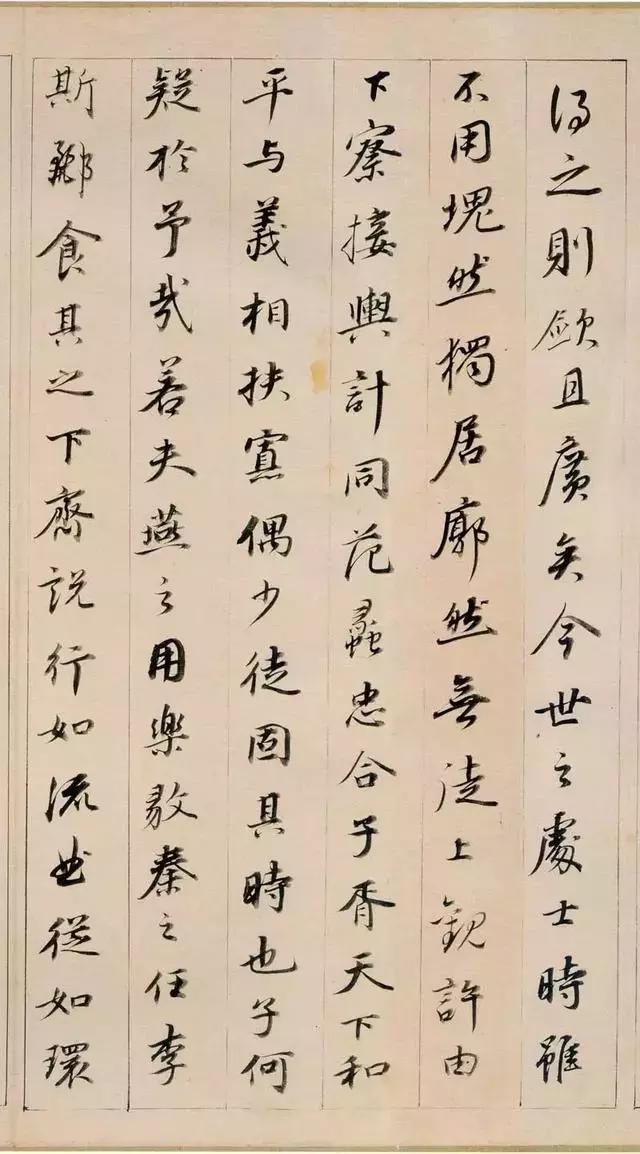 得之則且廣矣今世之處士時雖
不用塊然獨居廓然無徒上觀許由
下察接輿計同范蠡忠合子胥天下和
平与義相扶寡偶少徒固其時也子何
疑於予哉若夫燕之用樂毅秦之任李
斯酈食其之下齊說行如流曲從如環